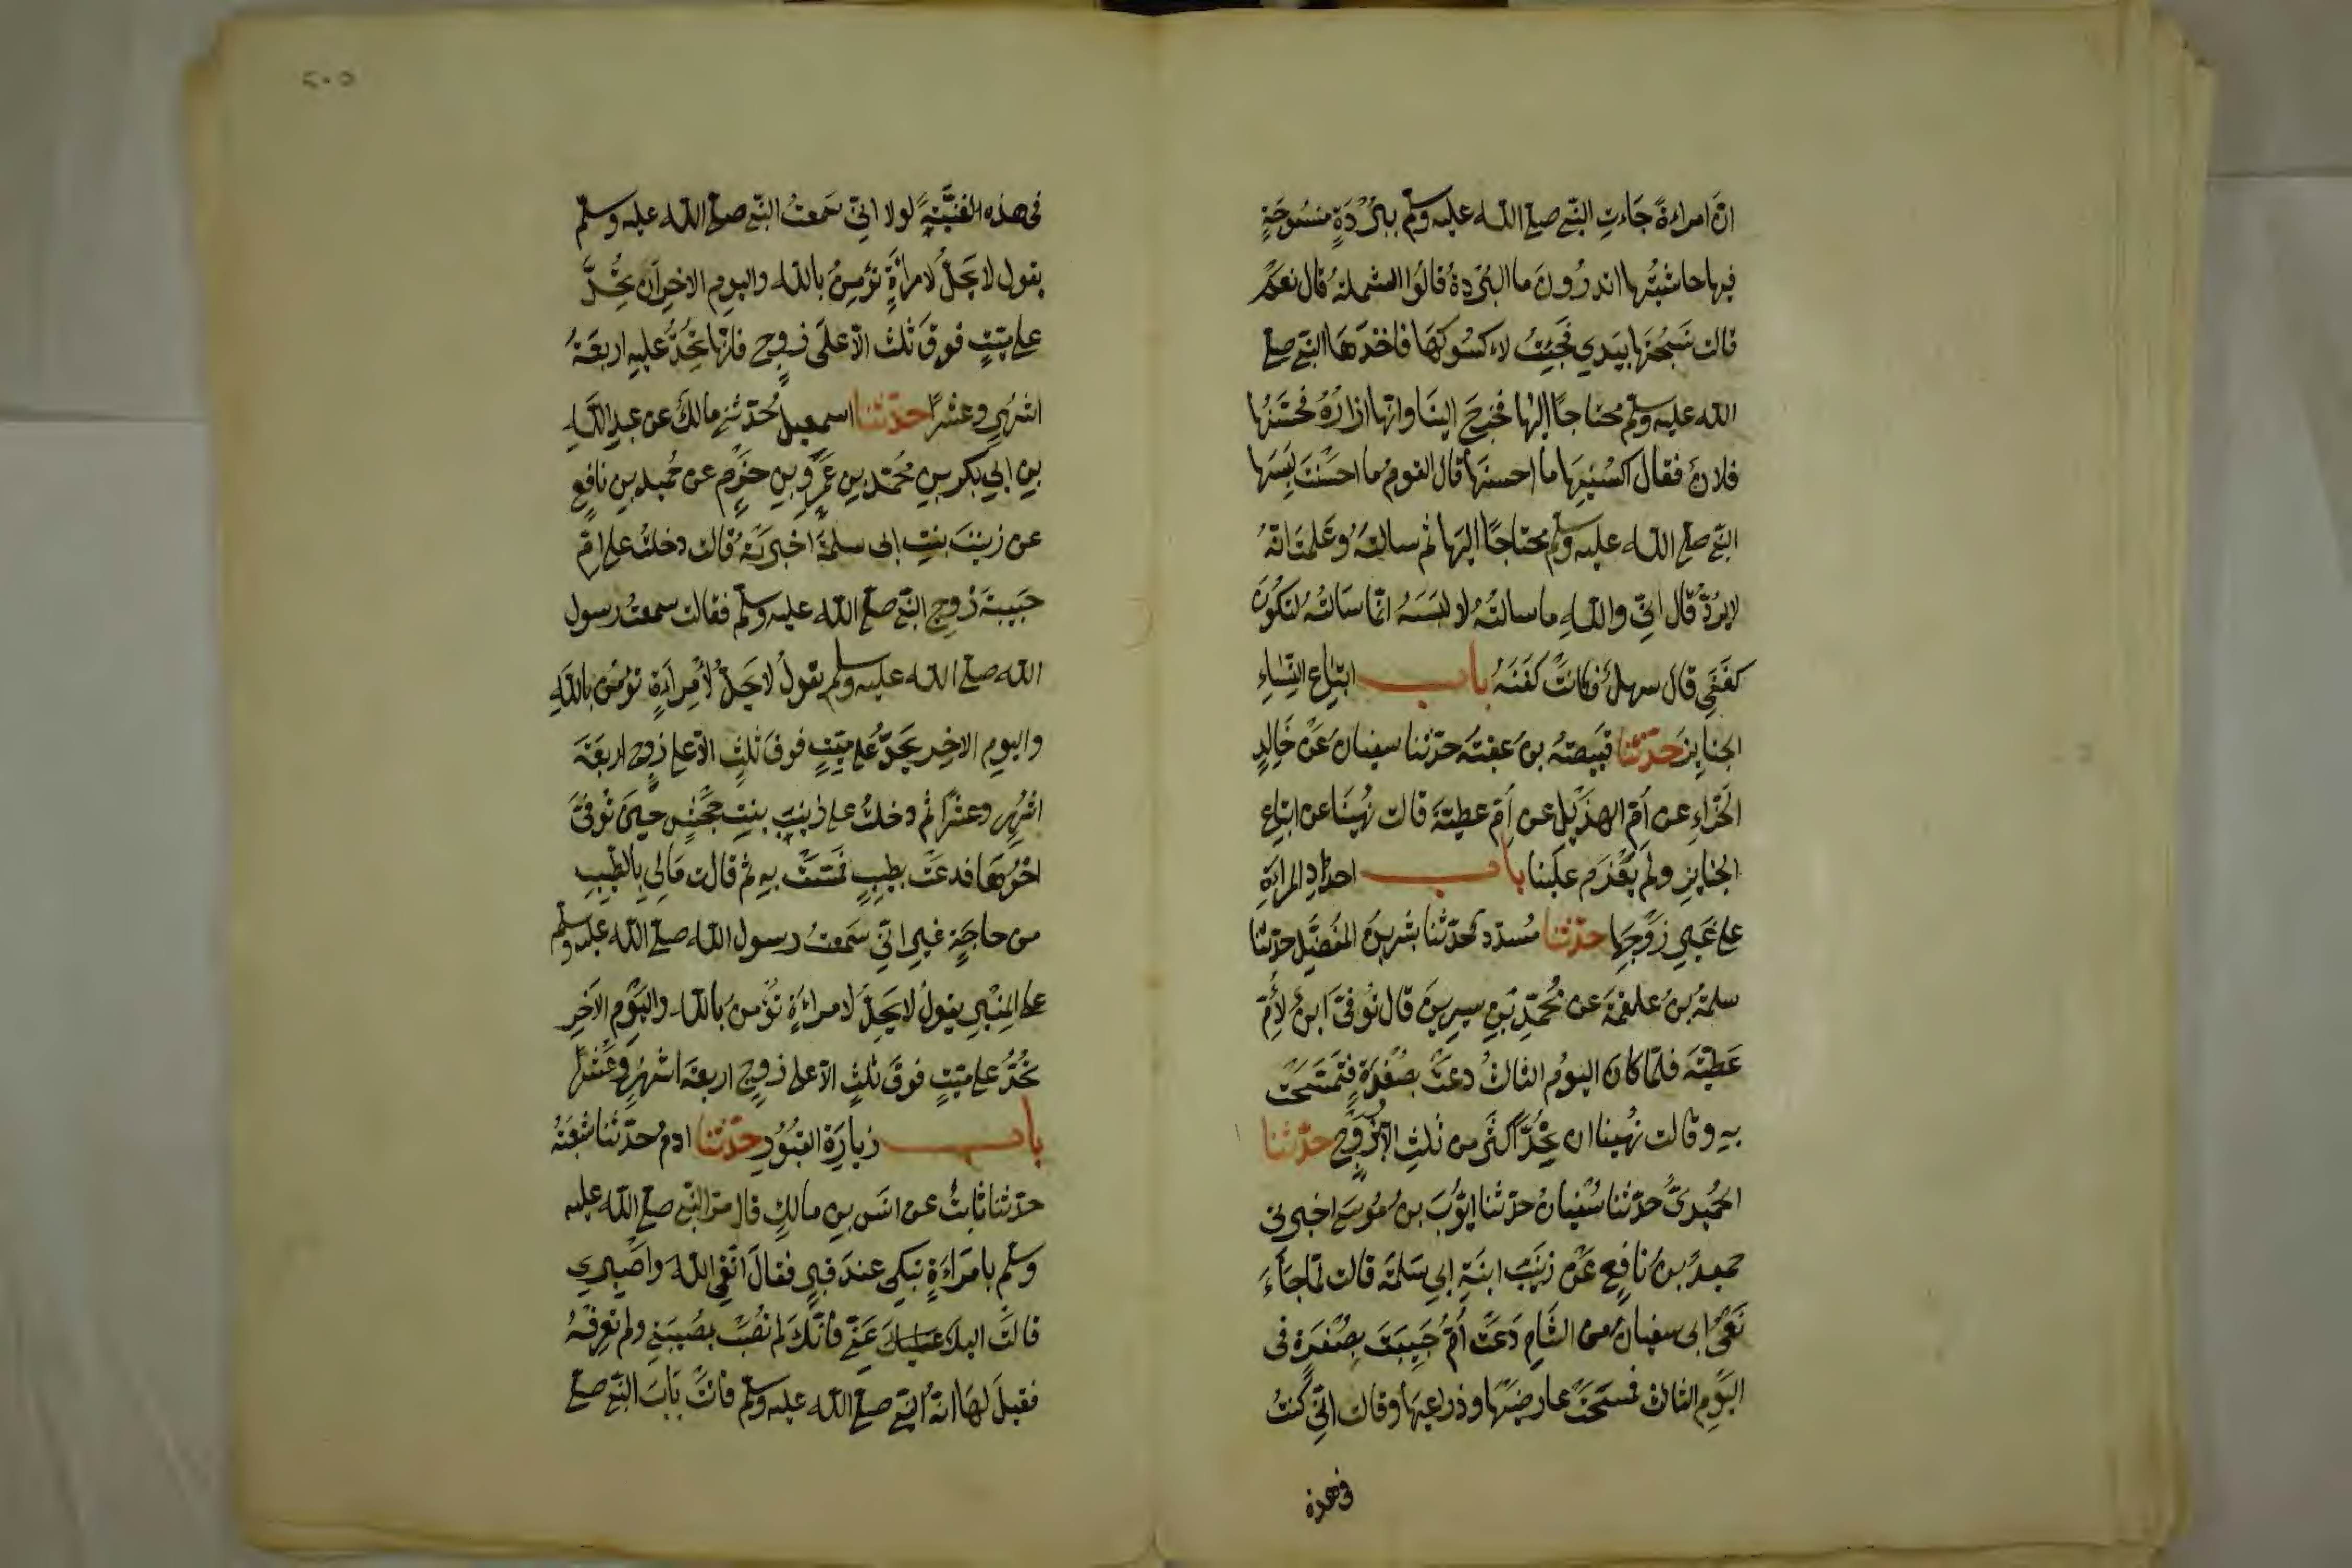 انّ امراءةً جَاءتِ النّبى صلى اللّٰه عليه وسلم بِبُرْدَةٍ منسُوجَةٍ
فيها حاشيتُها اتدرُونَ ما البُرْدةُ قالُوا الشملةُ قال نعَمْ
قالت نَسَجْتُهَا بيَدِي فجَيْتُ لاءكسُوكهَا فاخذهَا النبّى صلى
الله عليه وسلم محتاجًا اليْها فخرجَ الينَا وانّها ازارُهُ فحسّنَها
فلانٌ فقال اكسُنِيهَا ما احسنَهَا قال القومُ ما احْسَنْتَ لبِسَها
النبّى صلى الله عليه وسلم محتاجًا اليهَا ثم سالتَهُ وعَلمتَ انّهُ
لا يردُّ قال انّى واللّٰهِ ما سالتُهُ لالبَسَهُ انّما سَالتُهُ لتكُونَ
كفَنِى قال سهلٌ فكانتْ كفَنَهُ باب اتباعِ النِّسَاءِ
الجنايزَ حدّثنا قبيصَةُ بنُ عقبَةَ حدّثنا سفيانُ عَنْ خَالِدٍ
الحَذّاءِ عن اُمّ الهذَيْل عن اُمّ عطيّةَ قالت نُهينَا عن اتباعِ
الجنايزِ ولم يُعْزَم علينَا باب احدادِ المراءةِ
على غيرِ زَوْجِهَا حدّثنا مُسدّدٌ حدّثنا بشر بنُ المُفضَّلِ حدّثنا
سلمةُ بنُ علقمَةَ عن مُحمّدِ بْنِ سيرينَ قال تُوفّىَ ابنٌ لاُمِّ
عَطيّةَ فلمّا كان اليَوْم الثالثُ دعَتْ بصُفْرَةٍ فتمسّحَتْ
بهِ وقالت نُهينا ان نُحِدَّ اكثَر من ثلثٍ الا بزَوْجٍ حدّثنا
الحُميْدىُّ حدّثنا سُفْيانُ حدّثنا ايّوُبَ بنُ مُوسَى اخبرنى
حميدُ بنُ نافِعٍ عَنْ زينَبَ ابنَةِ ابى سَلمَةَ قالت لمّا جَاءَ
نَعْىُ ابى سفيانَ من الشَّامِ دَعَتْ اُمُّ حَبِيبَةَ بصُفْرَةٍ فى
اليَوْمِ الثالث فمسَحَتْ عارضَيْها وذراعيهَا وقالت انّى كُنتُ
فى هذه
٥٠٢
فى هذه لغنيّةً لولا انّى سَمعتُ النبّى صلّى اللّٰه عليه وسلم
يقول لا يحِلُّ لامراءةٍ تؤمِنُ باللّٰه واليومِ الاخرِ ان تُحِدَّ
على ميّتٍ فوقَ ثلث الّا على زوجٍ فانّها تُحِدُّ عليهِ اربعَةَ
اشهُرٍ وعشْرًا حدّثنا اسمعيلُ حدّثنى مالكٌ عن عبدِ اللّٰهِ
بنِ ابى بكر بنِ مُحمّد بنِ عَمْرو بنِ حَزْمٍ عن حُميد بنِ نافعٍ
عن زينَبَ بنتِ ابى سلمَةَ اخبرتهُ قالت دخلتُ على امِّ
حَبيبةَ زوجِ النبّى صلى اللّٰه عليه وسلم فقالت سمعتُ رسول
الله صلى الله عليه وسلم يقولُ لا يَحِلُّ لامْراءةٍ تؤمنُ باللّٰهِ
واليومِ الاخِرِ تحِدُّ على ميّتٍ فوقَ ثلثٍ الّا على زوجٍ اربعَةَ
اشْهُرٍ وعشْرًا ثم دخلتُ على زينبَ بنتِ جَحْشٍ حينَ تُوفّىَ
اخُوهَا فدعَتْ بطيبٍ فمسّتْ بهِ ثم قالت مَالى بالطّيبِ
من حاجَةٍ غيرِ انّى سَمعتُ رسول اللّٰه صلى اللّٰه عليه وسلم
على المِنْبرِ يقولُ لا يَحِلُّ لامراءةٍ تؤمنُ باللّٰه واليَوْمِ الاخِرِ
تُحِدُّ على ميّتٍ فوقَ ثلثٍ الّا على زوجٍ اربعة اشْهُرٍ وعَشْرًا
باب زيارَةِ القبُوُرِ حدّثنا ادمُ حدّثنا شعبَةُ
حدّثنا ثابتٌ عن انَس بنِ مالكٍ قال مرّ النبّى صلى اللّٰه عليه
وسلم بامرَاءةٍ تبكى عندَ قبرٍ فقالَ اتّقى اللّٰهَ واصْبِرِى
قالتْ اليكَ عَنّى فانّكَ لم تُصَبْ بمُصيبَتى ولم تعْرِفهُ
فقيلَ لهَا انهُ النبّى صلى اللّٰه عليه وسلم فاتتْ بَابَ النبّى صلى